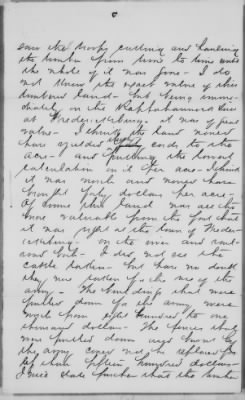 saw the troops cutting and hauling
the timber from time to time until
the whole of it was gone - I do
not know the exact value of this
timbered land - but being imme-
diately on the Rappahannock river
at Fredericksburg - it was of great
value - I think the land would
have yielded cords to the
acre - and putting the lowest
calculation on it per acre - I think
it was worth and would have
brought fifty dollars per acre -
Of course this land was all the
more valuable from the fact that
it was right at the town of Freder-
icksburg - on the river and rail-
road both - I did not see the
cattle taken - but have no doubt
they were taken for the use of the
army - The building that were
pulled down by the army were
worth from eight hundred to one
thousand dollars - The fences that
were pulled down and burnt by
the army could not be replaced for
less than fifteen hundred dollars -
I will state further that the timber